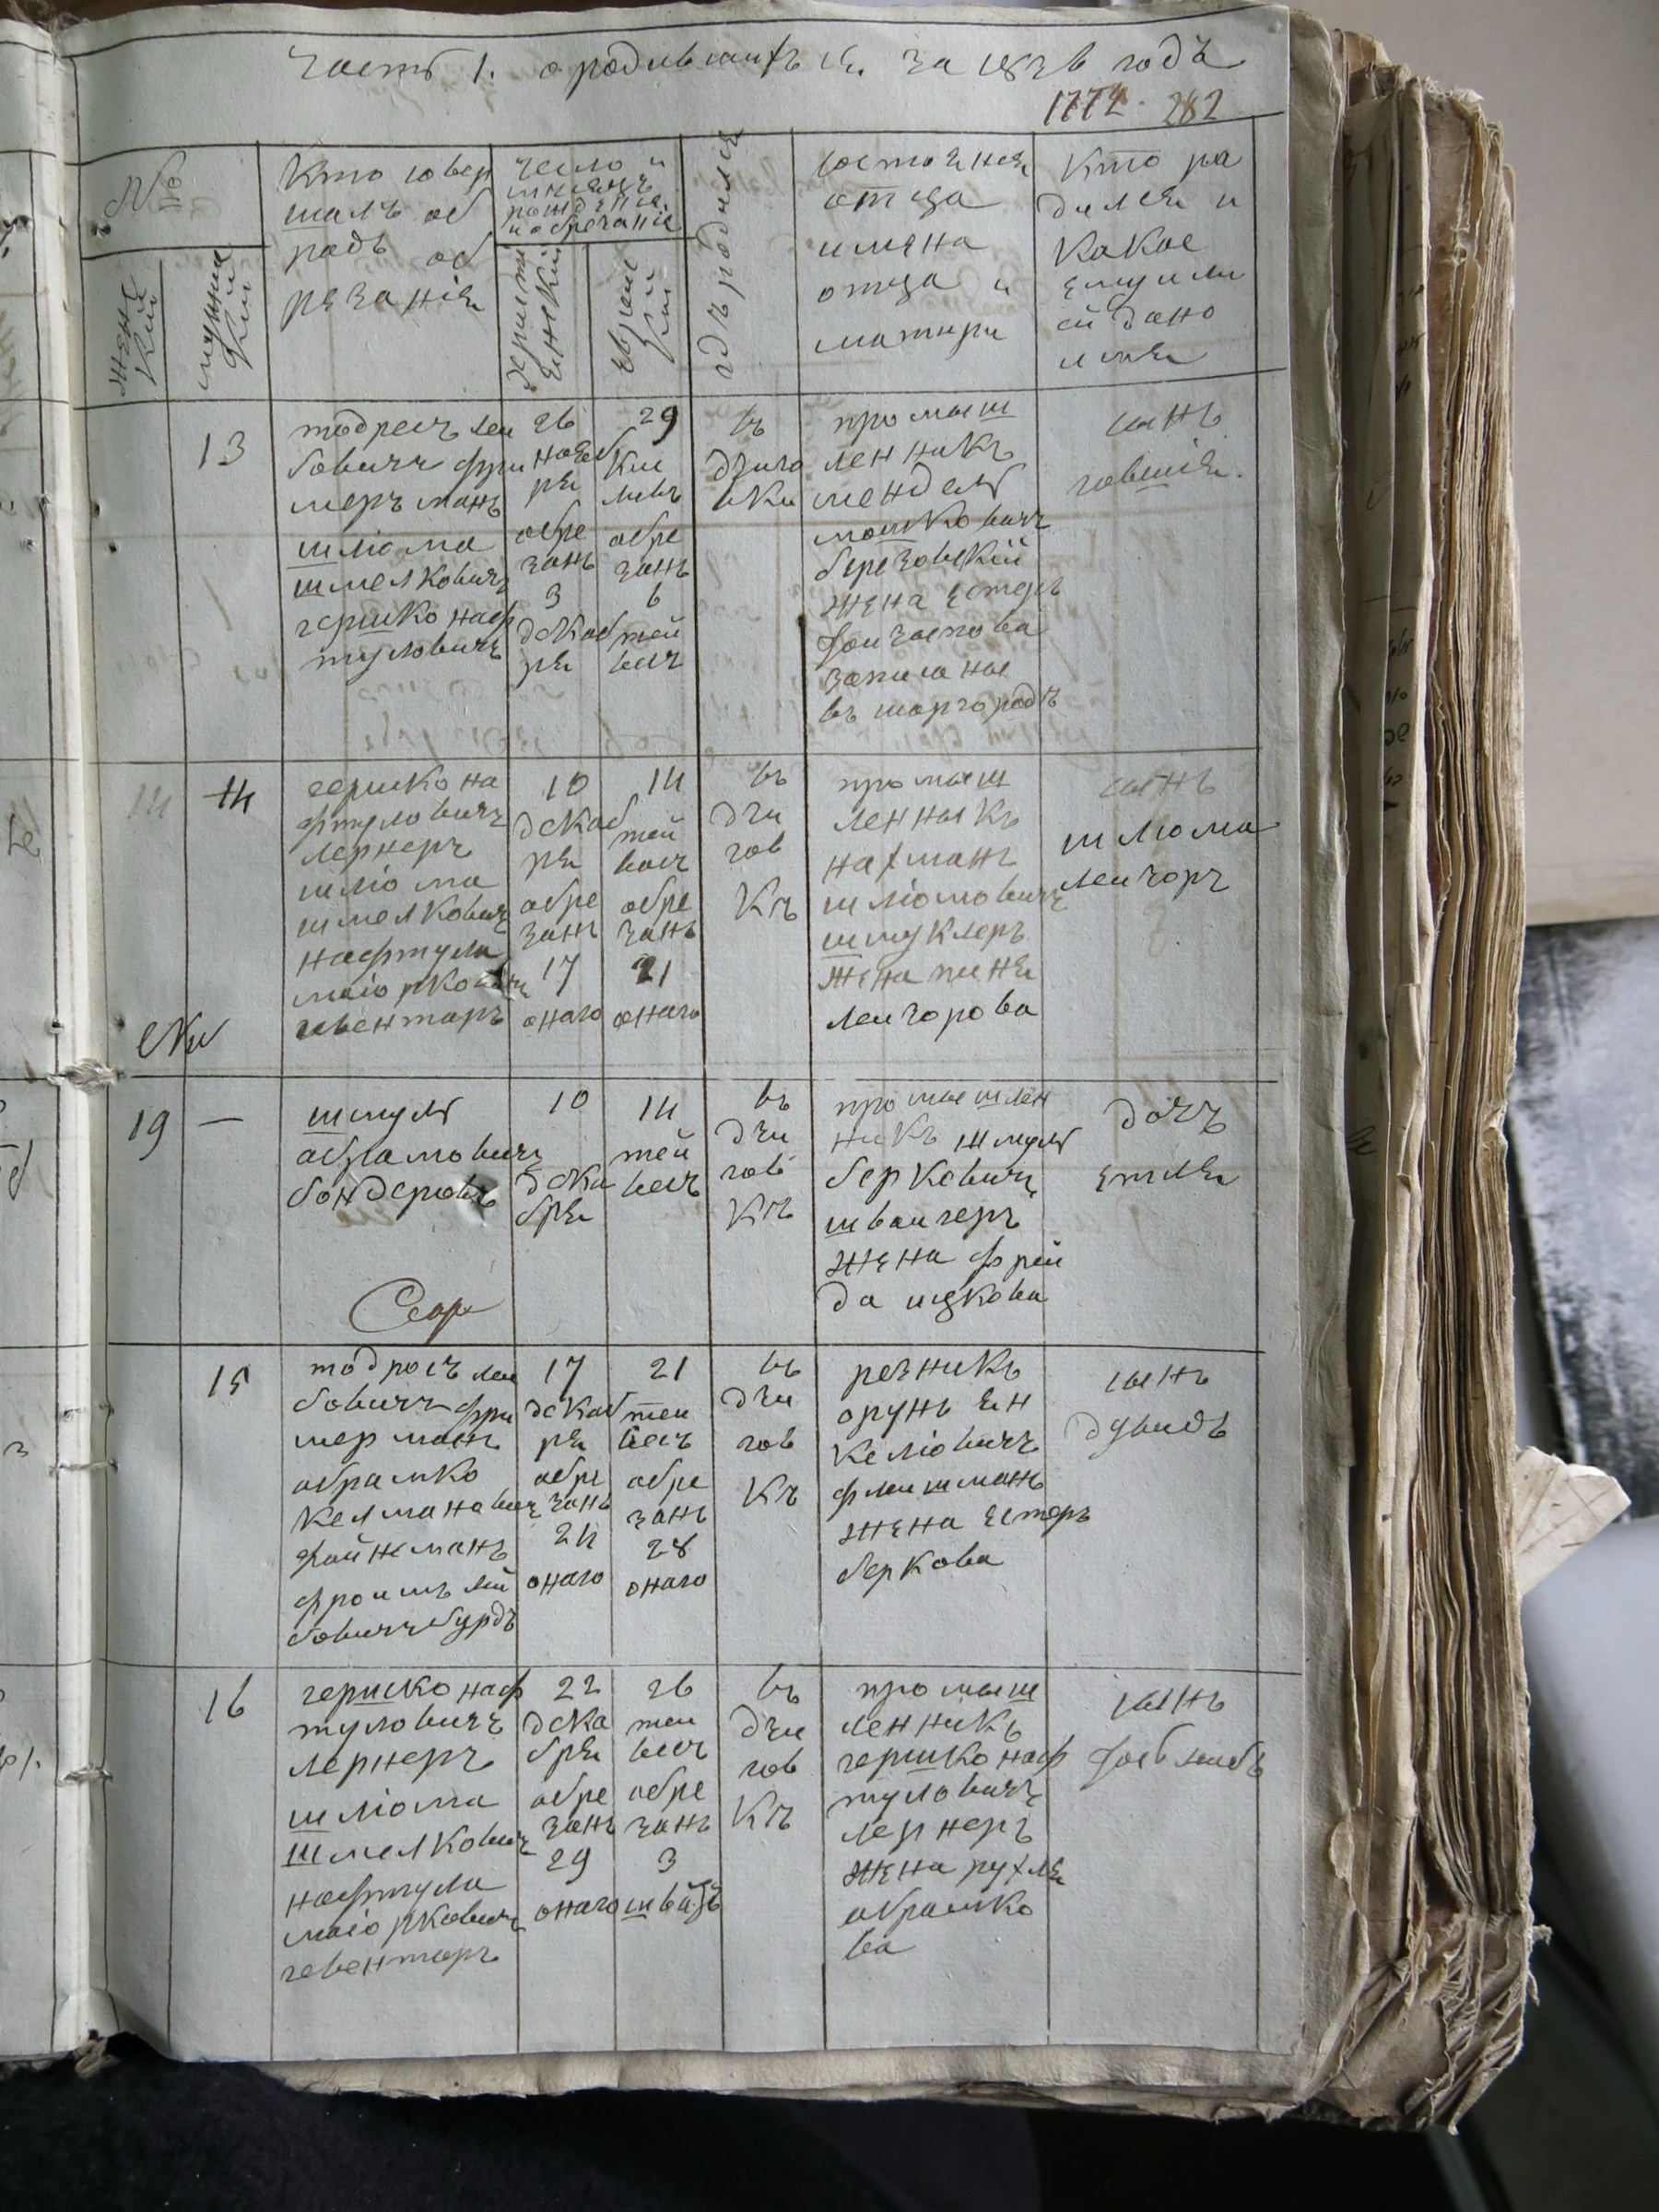 Часть 1. о родившихъ ся за 1836 годъ
1772. 282
№
женс
кий
мужес
кий
Кто совер
шалъ об
радъ об
резанія
число и
месецъ
рождения
и обрезаніе
христи
енский
еврейс
кий
гдъ родился
состоянея
отеца
имяна
отеца и
матери
Кто ра
дился и
какое
ему или
ей дано
имя
13
тодресъ леи
бовичъ фри
меръ манъ
шлiома
шмелковичъ
гершко наф
туловичъ
26
нояб
ря
обре
занъ
3
декаб
ря
29
кис
левъ
обре
занъ
6
тей
весъ
въ
дзиго
вки
промыш
ленникъ
мендель
мошковичъ
березовский
жена естеръ
записаные
въ шаргородъ
сынъ
говшія.
14
14
гершко на
фтуловичъ
лернеръ
шлiома
шмелковичъ
нафтула
маіорковичъ
гевентеръ
10
декаб
ря
обре
занъ
17
онаго
14
тей
весъ
обре
занъ
21
онаго
въ
дзи
гов
къ
промыш
ленныкъ
нахманъ
шлiомовичъ
шмуклеръ
жена пиня
леизорова
сынъ
шлюма
леизоръ
19
—
шмуль
абрамовичъ
бондеровъ
10
дека
бря
14
тей
весъ
въ
дзи
гов
къ
промышлен
никъ шмуль
берковичъ
швайгеръ
жена фрей
да ицкова
дочъ
етля
15
тодросъ леи
бовичъ фри
мер манъ
абрамко
келмановичъ
файнманъ
фроимъ лей
бовичъ бурдъ
17
декаб
ря
обре
занъ
24
онаго
21
теи
весъ
обре
занъ
28
онаго
въ
дзи
гов
къ
резникъ
орунъ ян
келіовичъ
флеишманъ
жена естеръ
беркова
сынъ
дувидъ
16
гершко наф
туловичъ
лернеръ
шлiома
шмелковичъ
нафтула
маіорковичъ
гевентеръ
22
дека
бря
обре
занъ
29
онаго
26
теи
весъ
обре
занъ
3
въ
дзи
гов
къ
промыш
ленникъ
гершко наф
туловичъ
лернеръ
жена рухля
абрамко
ва
сынъ